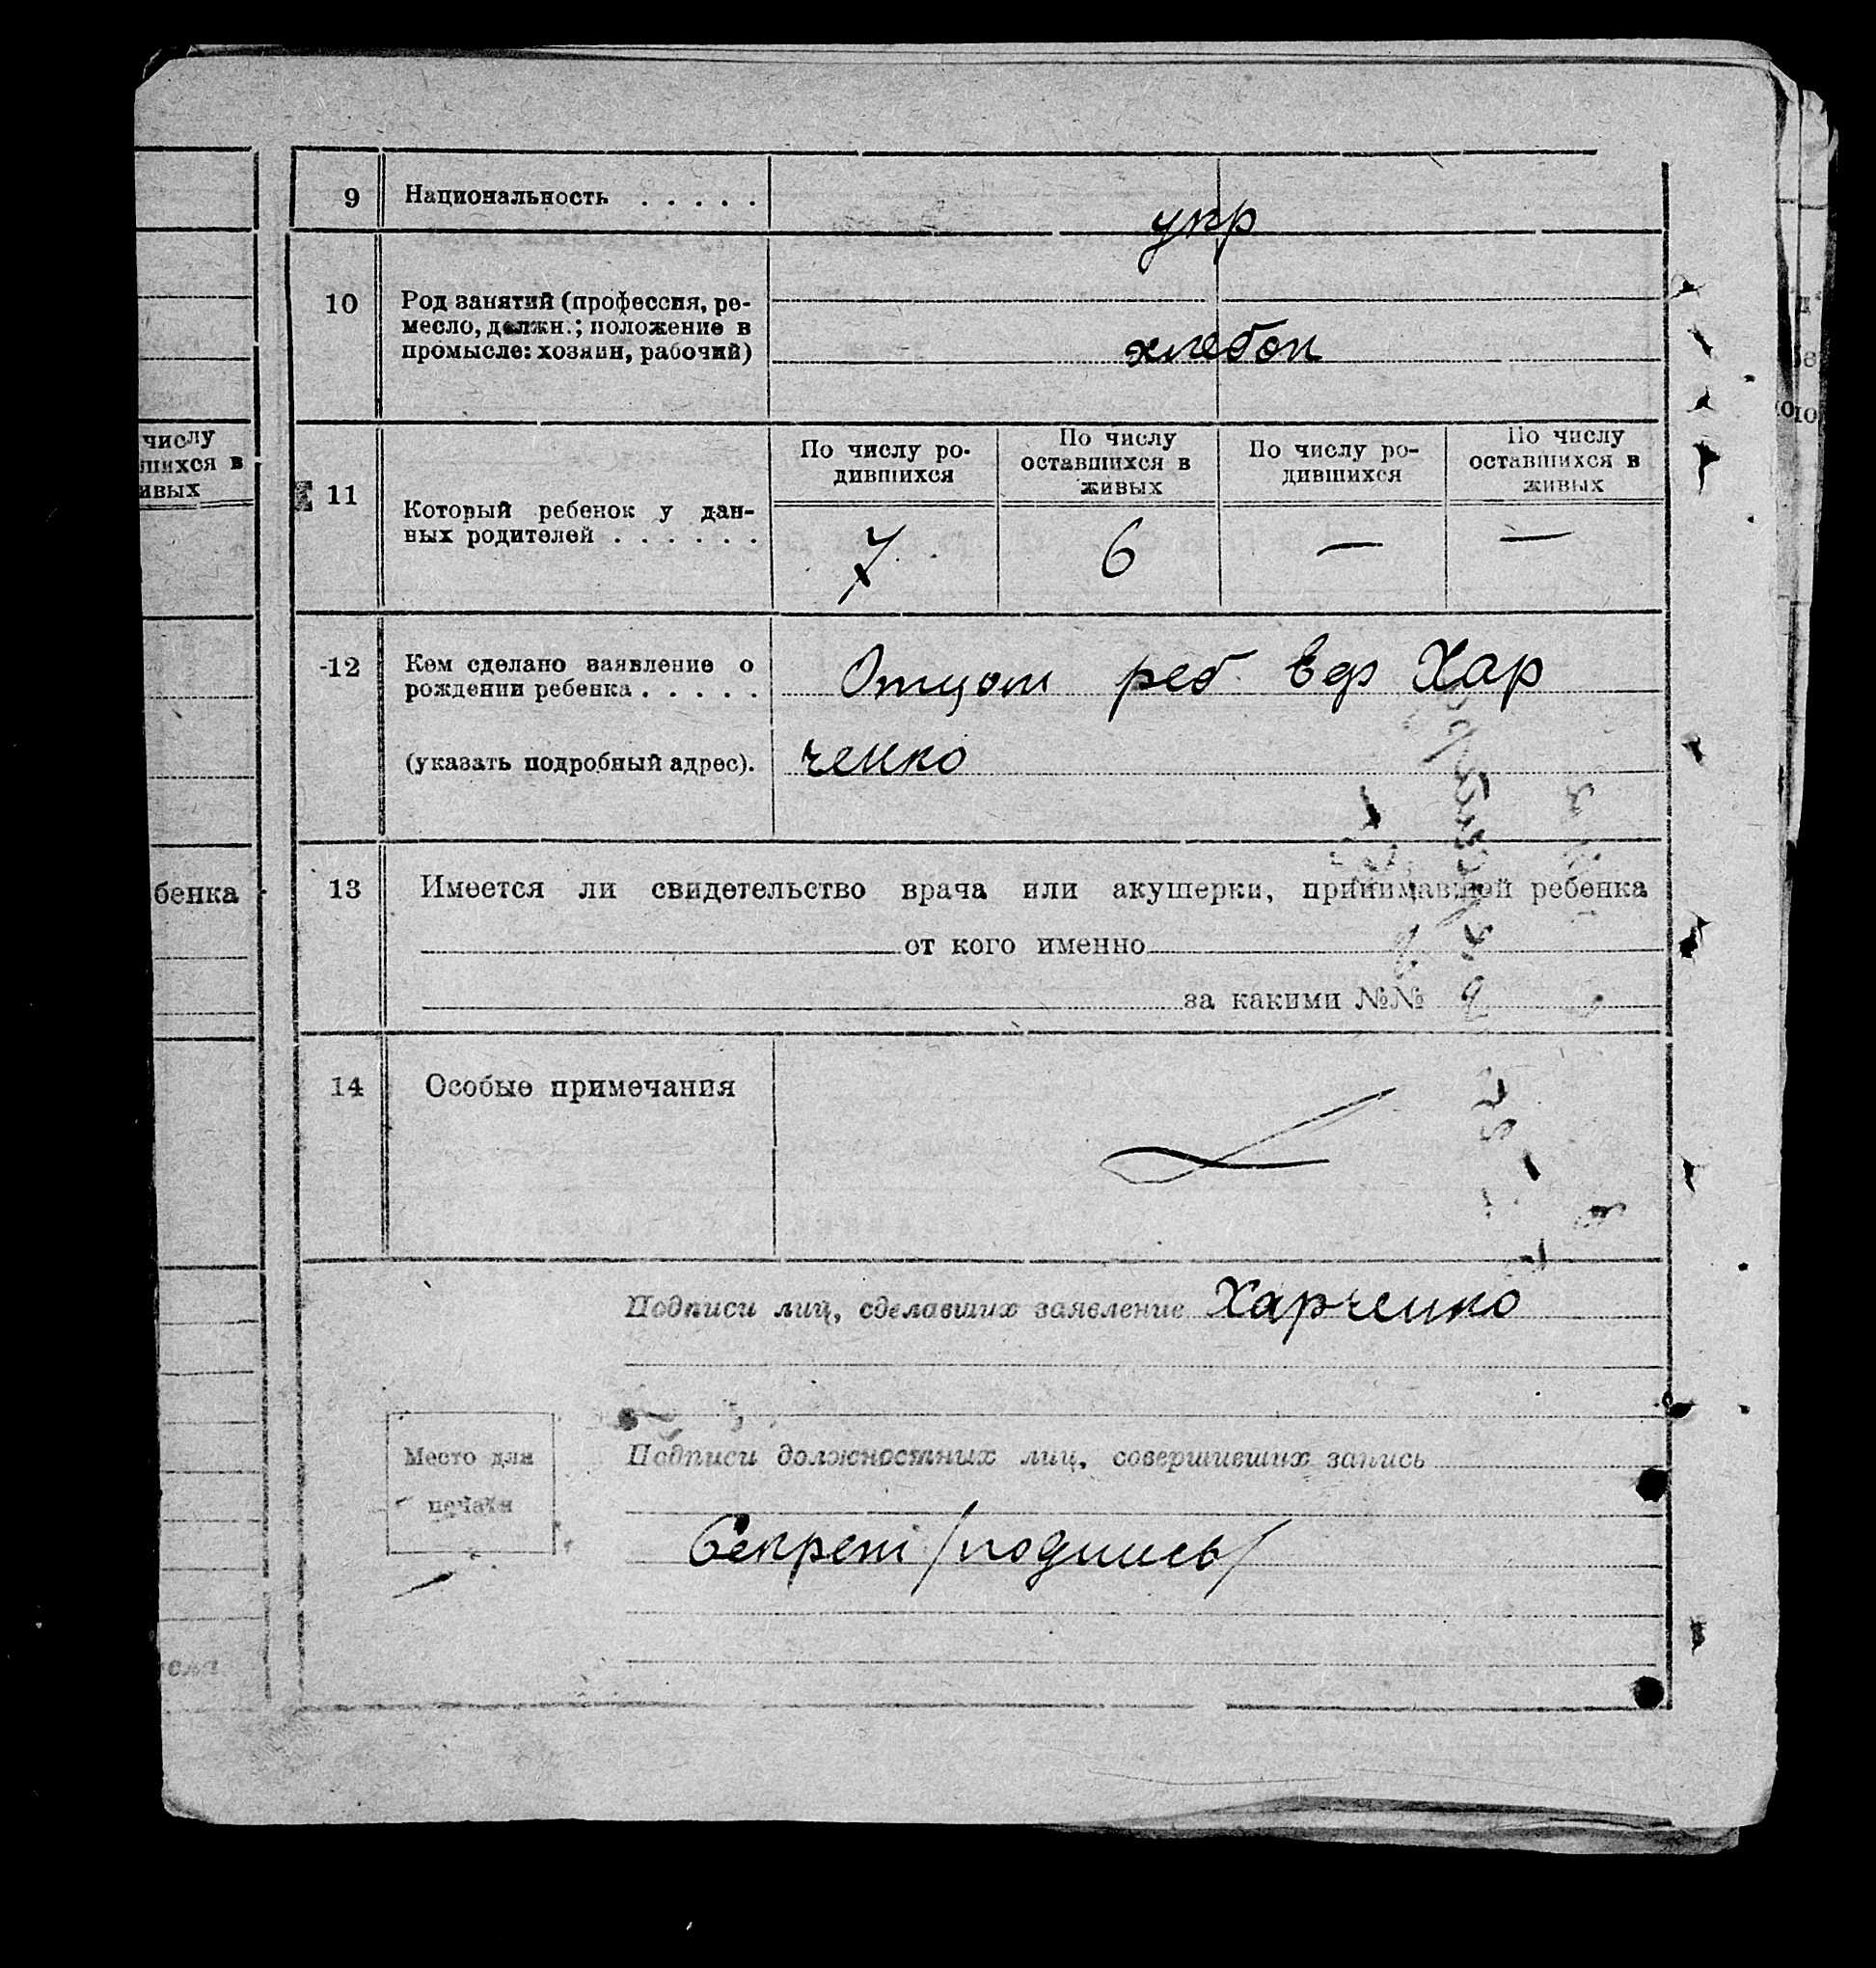 9 Национальность . . . . .
укр
10 Род занятий (профессия, ре-
месло, должн.; положение в
промысле: хозяин, рабочий)
хлебоп
числу
шихся в
ивых
11 Который ребенок у дан-
ных родителей . . . . . .
По числу ро-
дившихся
По числу
оставшихся в
живых
По числу ро-
дившихся
По числу
оставшихся в
живых
7 6 — —
12 Кем сделано заявление о
рождении ребенка . . . . .
Отцом реб Еф Хар
(указать подробный адрес).
ченко
бенка
13 Имеется ли свидетельство врача или акушерки, принимавшей ребенка
от кого именно
за какими №№
14 Особые примечания
Подписи лиц, сделавших заявление Харченко
Место для
печати
Подписи должностных лиц, совершивших запись
Секрет /подпись/